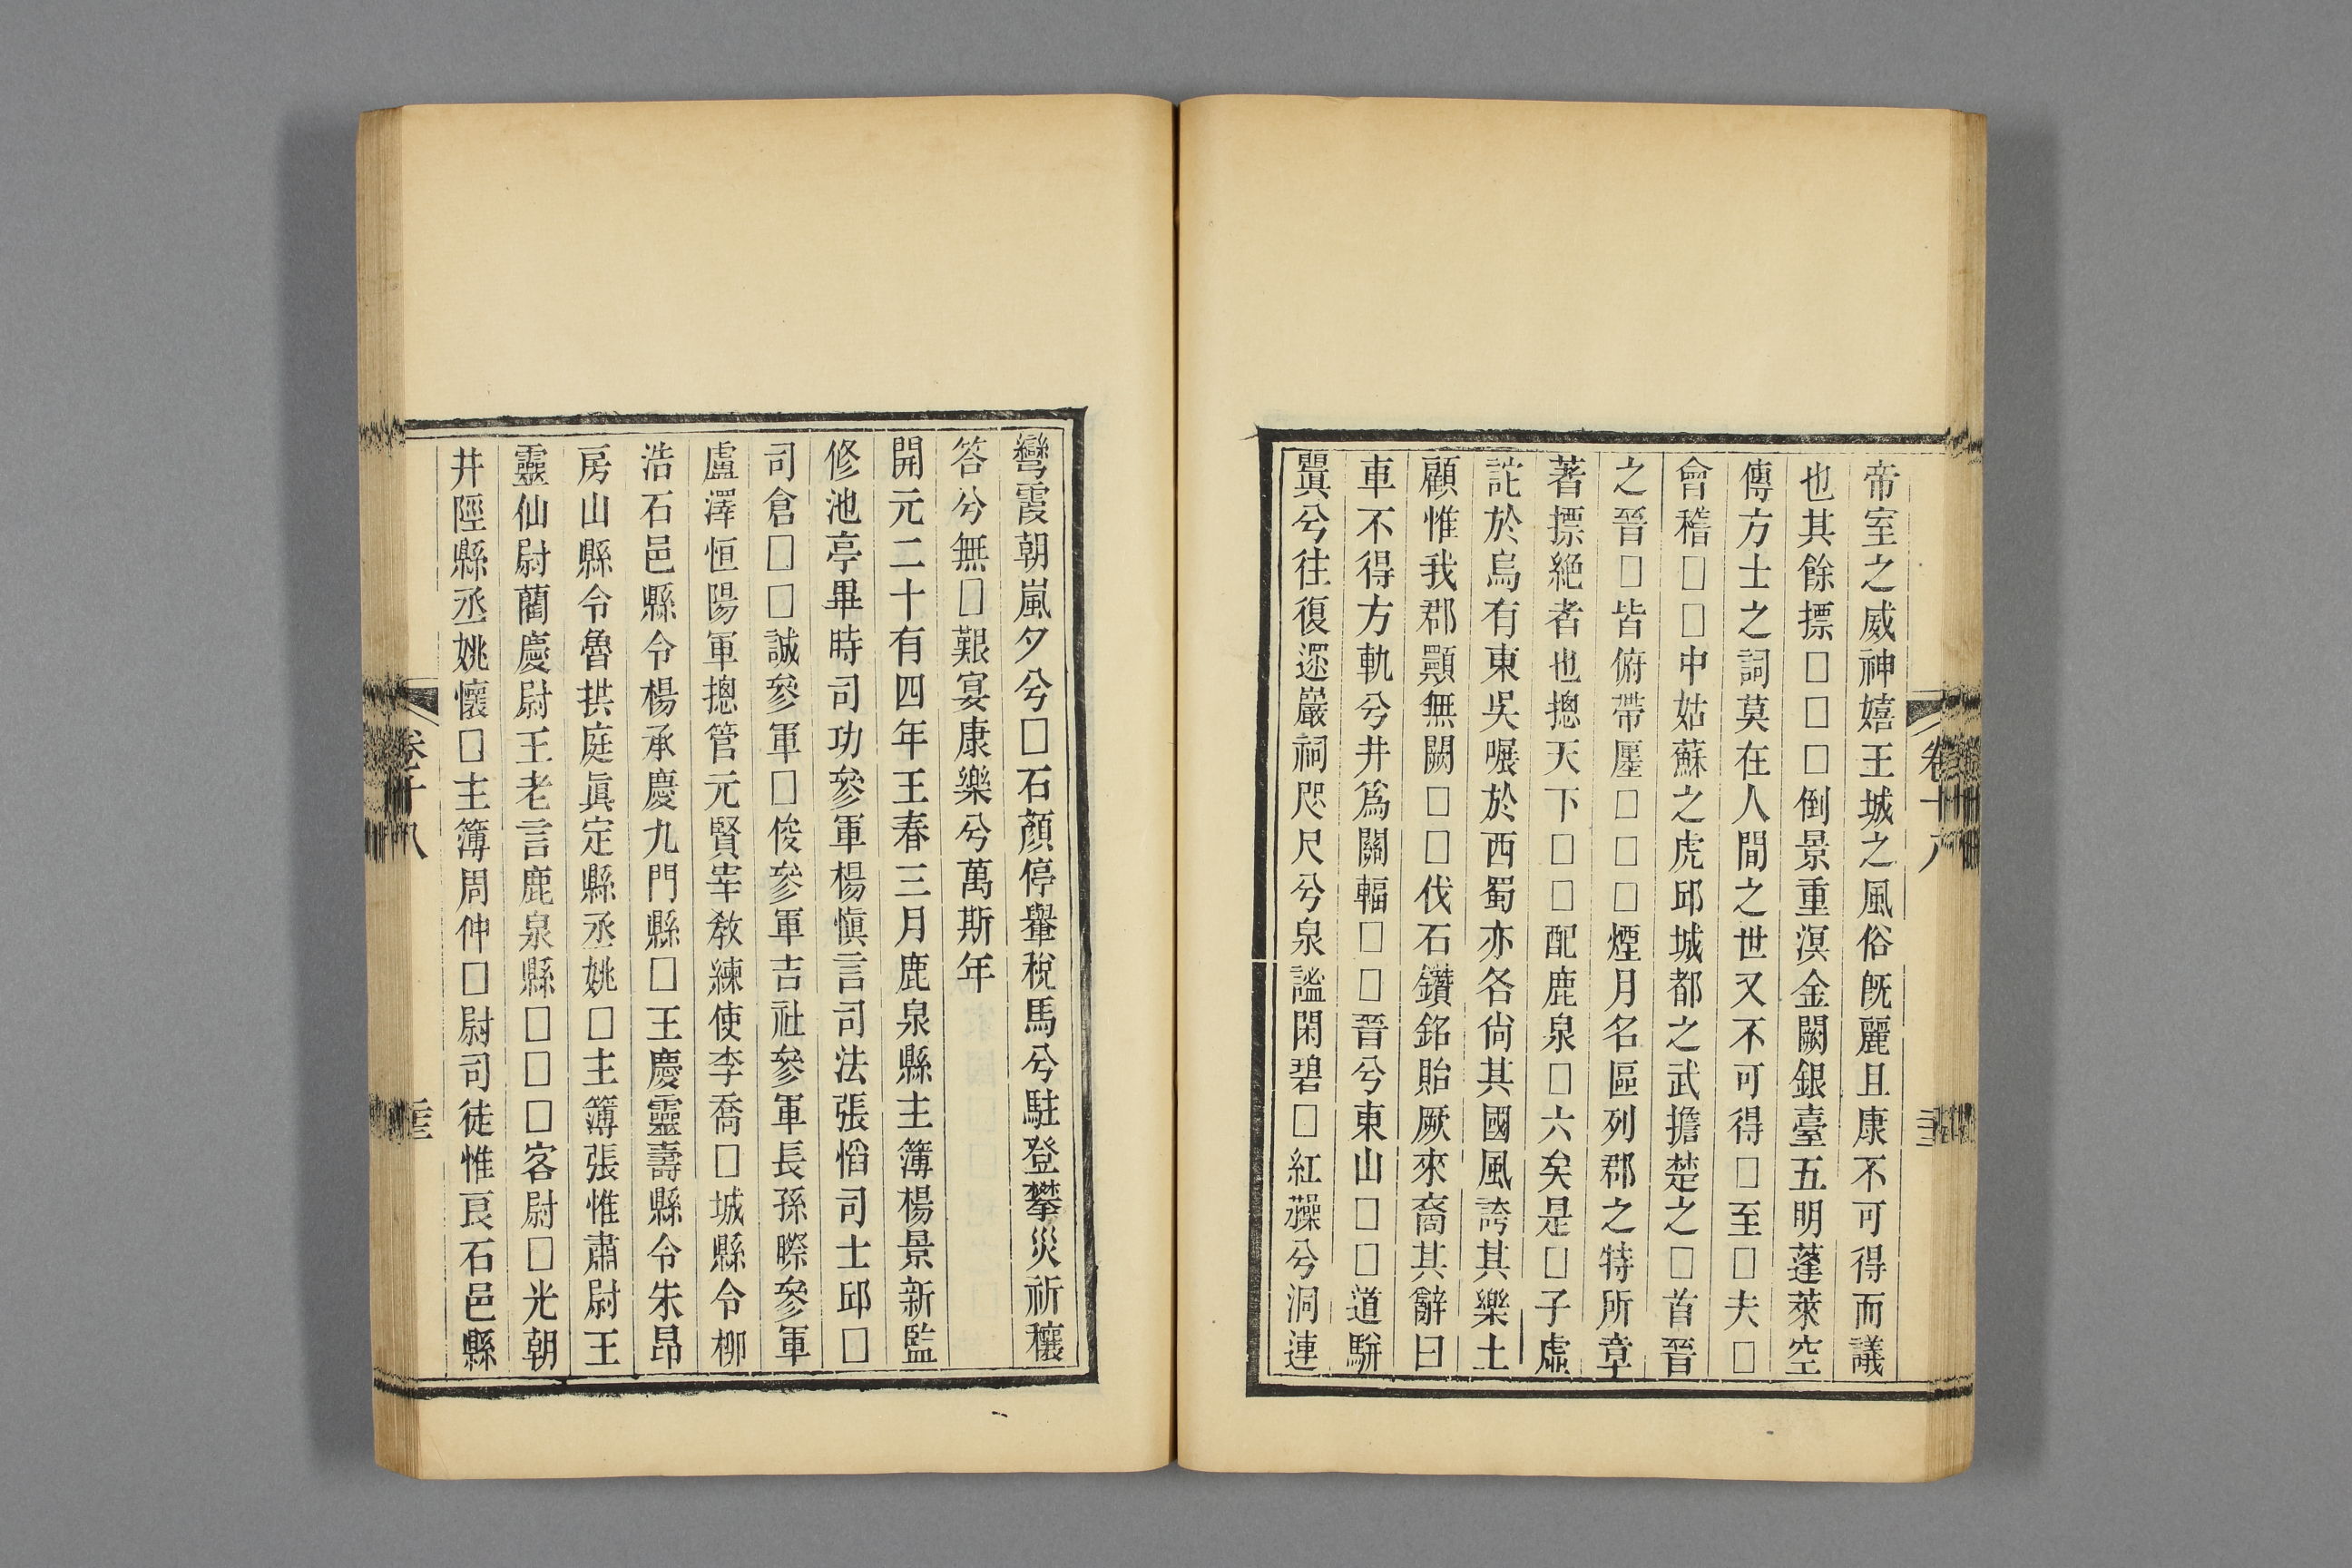 帝室之威神嬉王城之風俗旣麗且康不可得而議
也其餘摽□□□倒景重溟金闕銀臺五明蓬萊空
傳方士之詞莫在人間之世又不可得□至□夫□
會稽□□中姑蘇之虎邱城都之武擔楚之□首晉
之晉□皆俯帶壓□□□煙月名區列郡之特所章
著摽絕者也摠天下□□配鹿泉□六矣是□子虛
詫於烏有東吳㘓於西蜀亦各尙其國風誇其樂土
顧惟我郡顯無闕□□伐石鑽銘貽厥來裔其辭曰
車不得方軌兮井爲關輻□□晉兮東山□□道騈
㠱兮往復還巖祠咫尺兮泉謐閑碧□紅藻兮洞連
卷十八
彎霞朝嵐夕兮□石顏停轝稅馬兮駐登攀災祈穰
答兮無□艱宴康樂兮萬斯年
開元二十有四年王春三月鹿泉縣主簿楊景新監
修池亭畢時司功參軍楊愼言司法張慆司士邱□
司倉□□誠參軍□俊參軍吉祉參軍長孫曎參軍
盧澤恒陽軍摠管元賢宰敎練使李喬□城縣令柳
浩石邑縣令楊承慶九門縣□王慶靈壽縣令朱昂
房山縣令魯拱庭眞定縣丞姚□主簿張惟肅尉王
靈仙尉藺慶尉王老言鹿泉縣□□□客尉□光朝
井陘縣丞姚懷□主簿周仲□尉司徒惟良石邑縣
卷十八